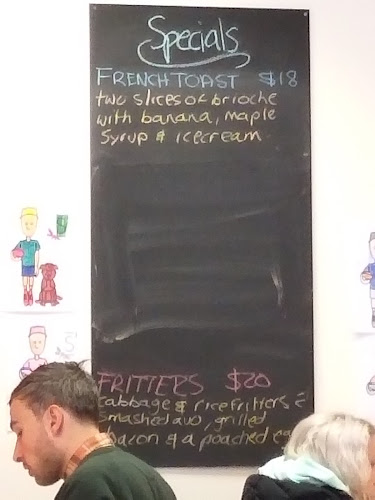 Specials
FRENCH TOAST $18
two slices of brioche
with banana, maple
syrup & icecream.
FRITTERS $20
cabbage & rice fritters c̄
smashed avo, grilled
bacon & a poached